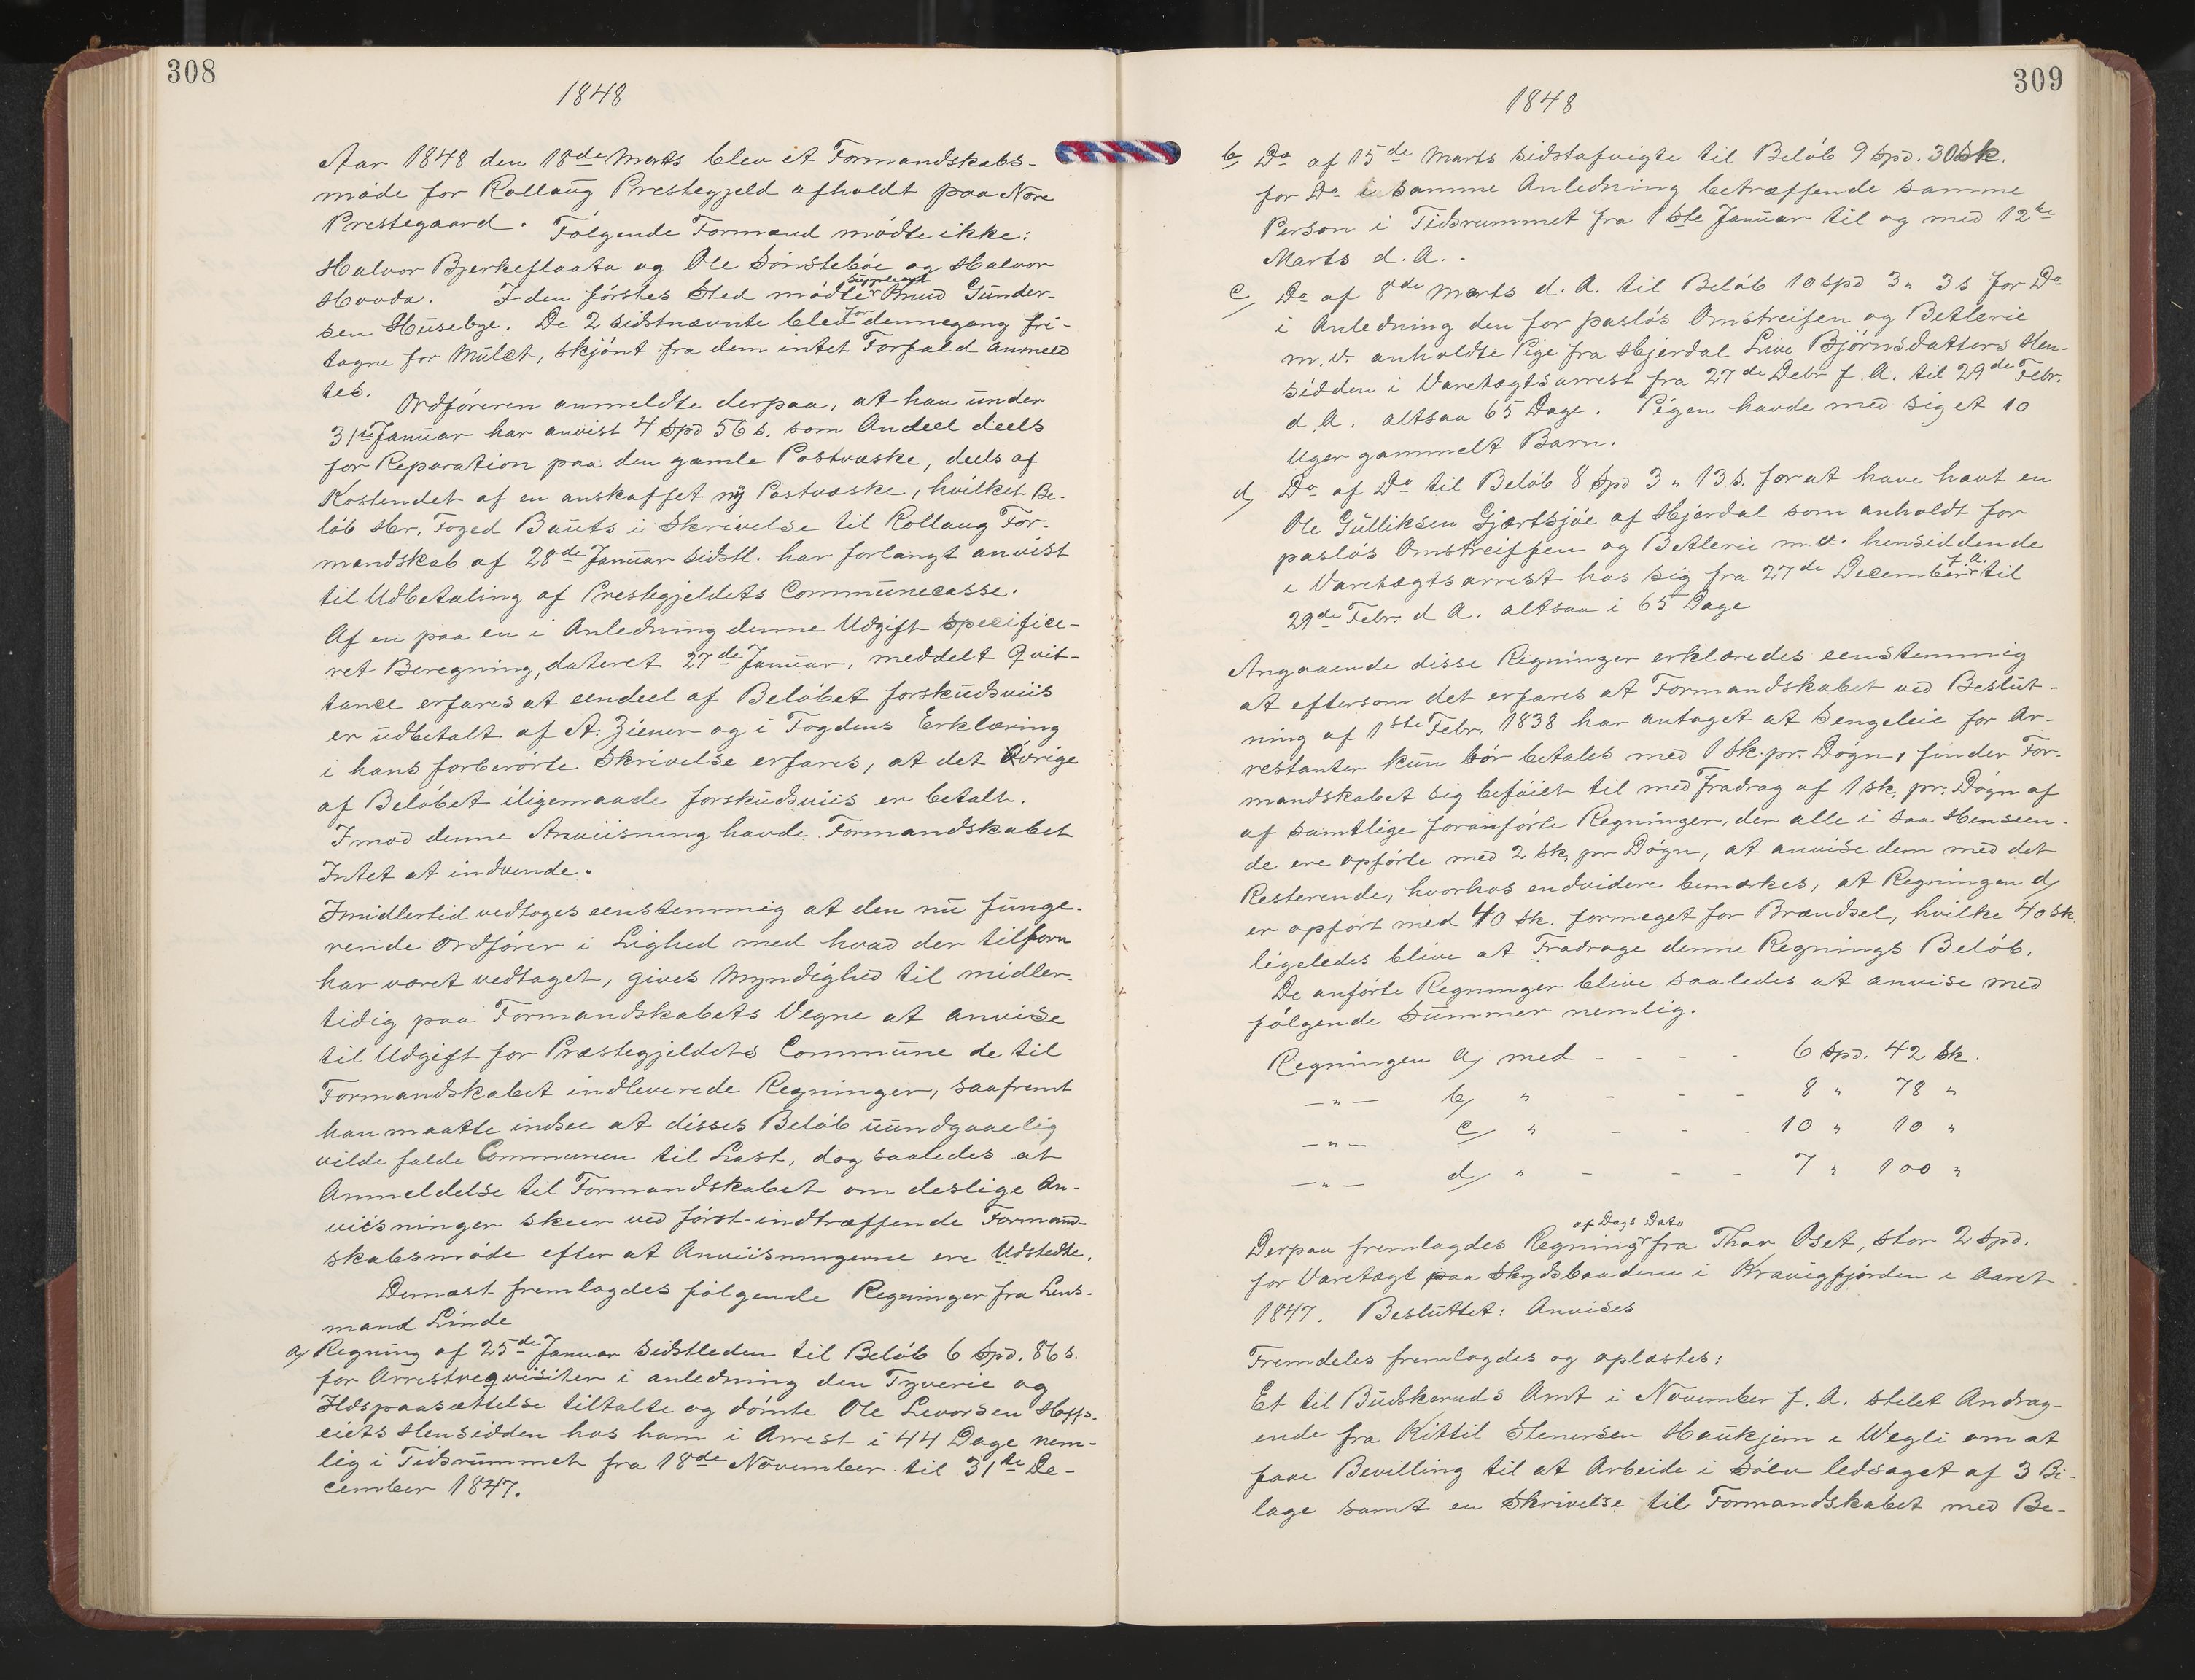 308
1848
Aar 1848 den 18de Marts blev et Formandskabs-
møde for Rollaug Prestegjeld afholdt paa Nore
Prestegaard. Følgende Formænd mødte ikke:
Halvor Bjerkeflaata og Ole Sønstebøe og Halvor
Hovda. I den førstes Sted mødte Suppleant Knud Gunder-
sen Husebye. De 2 sidstnævnte blev for dennegang fri-
tagne for Mulct, skjønt fra dem intet Forfald anmeld
tes.
Ordføreren anmeldte derpaa, at han under
31te Januar har anvist 4 Spd 56 s. som Andeel deels
for Reparation paa den gamle Postvæske, deels af
Kostendet af en anskaffet ny Postvæske, hvilket Be-
løb Hr. Foged Bauts i Skrivelse til Rollaug For-
mandskab af 28de Januar sidstl. har forlangt anvist
til Udbetaling af Prestegjeldets Communecasse.
Af en paa en i Anledning denne Udgift specifice-
ret Beregning, dateret 27de Januar, meddelt Qvit-
tance erfares at eendeel af Beløbet forskudsviis
er udbetalt af A. Ziener og i Fogdens Erklæring
i hans forberørte Skrivelse erfares, at det Øvrige
af Beløbet iligemaade forskudsviis er betalt.
Imod denne Anviisning havde Formandskabet
Intet at indvende.
Imidlertid vedtoges eenstemmig at den nu funge-
rende Ordfører i Lighed med hvad der tilforn
har været vedtaget, gives Myndighed til midler-
tidig paa Formandskabets Vegne at anvise
til Udgift for Præstegjeldets Commune de til
Formandskabet indleverede Regninger, saafremt
han maatte indsee at disses Beløb uundgaaelig
vilde falde Communen til Last, dog saaledes at
Anmeldelse til Formandskabet om deslige An-
viisninger skeer ved først-indtræffende Formand-
skabsmøde efter at Anviisningerne ere Udstedte.
Dernæst fremlagdes følgende Regninger fra Lens-
mand Linde
a) Regning af 25de Januar sidstleden til Beløb 6 Spd. 86 s.
for Arrestreqvisiter i anledning den Tyverie og
Ildspaasættelse tiltalte og dømte Ole Levorsen Hoffs-
eiets Hensidden hos ham i Arrest i 44 Dage nem-
lig i Tidsrummet fra 18de November til 31te De-
cember 1847.
309
1848
b) Do af 15de Marts sidstafvigte til Beløb 9 Spd. 30 sk.
for Do i samme Anledning betræffende samme
Person i Tidsrummet fra 1ste Januar til og med 12te
Marts d. A.
c) Do af 8de Marts d. A. til Beløb 10 spd 3 " 3 s for Do
i Anledning den for pasløs Omstreifen og Betlerie
m. v. anholdte Pige fra Hjerdal Live Bjørnsdatters Hen-
sidden i Varetægtsarrest fra 27de Debr f. A. til 29de Febr.
d. A. altsaa 65 Dage. Pigen havde med sig et 10
Uger gammelt Barn.
d) Do af Do til Beløb 8 Spd 3 " 13 s. for at have havt en
Ole Gulliksen Gjærtsjøe af Hjerdal som anholdt for
pasløs Omstreiffen og Betlerie m. v. hensiddende
i Varetægtsarrest hos sig fra 27de December f. A. til
29de Febr. d A. altsaa i 65 Dage
Angaaende disse Regninger erklæredes eenstemmig
at eftersom det erfares at Formandskabet ved Beslut-
ning af 1ste Febr. 1838 har antaget at Sengeleie for Ar-
restanter kun bør betales med 1 Sk. pr. Døgn, finder For-
mandskabet sig beføiet til med Fradrag af 1 sk. pr. Døgn af
af samtlige foranførte Regninger, der alle i saa Henseen-
de ere opførte med 2 sk. pr Døgn, at anvise dem med det
Resterende, hvorhos endvidere bemærkes, at Regningen d)
er opført med 40 sk. formeget for Brændsel, hvilke 40 sk.
ligeledes blive at Fradrage denne Regnings Beløb.
De anførte Regninger blive saaledes at anvise med
følgende Summer nemlig.
Regningen a) med - - - - 6 Spd. 42 Sk.
— " — b) " - - - 8 " 78 "
— " — c) " - - - 10 " 10 "
— " — d) " - - - 7 " 100 "
Derpaa fremlagdes Regning af Dags Dato fra Thor Oset, stor 2 Spd.
for Varetægt paa Skydsbaadene i Kravigfjorden i Aaret
1847. Besluttet: Anvises
Fremdeles fremlagdes og oplæstes:
Et til Budskeruds Amt i November f. A. stilet Andrag-
ende fra Kittil Stenersen Haukjem i Wegli om at
faae Bevilling til at Arbeide i Sølv ledsaget af 3 Bi-
lage samt en Skrivelse til Formandskabet med Be-